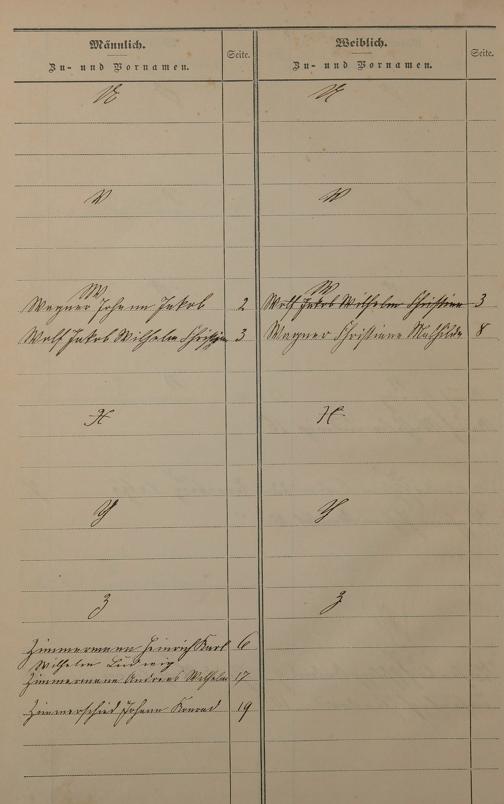 Männlich.
Zu- und Vornamen.
Seite.
U
V
W
Wagner Johann Jakob 2
Wolf Jakob Wilhelm Christian 3
X
Y
Z
Zimmermann Heinrich Karl 6
Wilhelm Ludwig
Zimmermann Andreas Wilhelm 17
Zimmerschied Johann Konrad 19
Weiblich.
Zu- und Vornamen.
Seite.
U
V
W
Wolf Jakob Wilhelm Christian 3
Wagner Christiane Mathilde 8
X
Y
Z